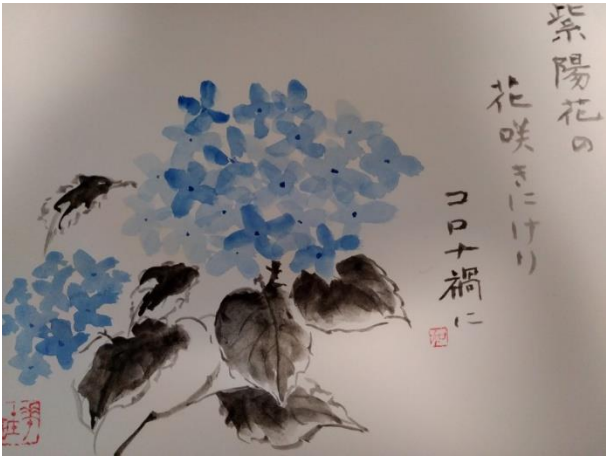 紫陽花の
花咲きにけり
コロナ禍に